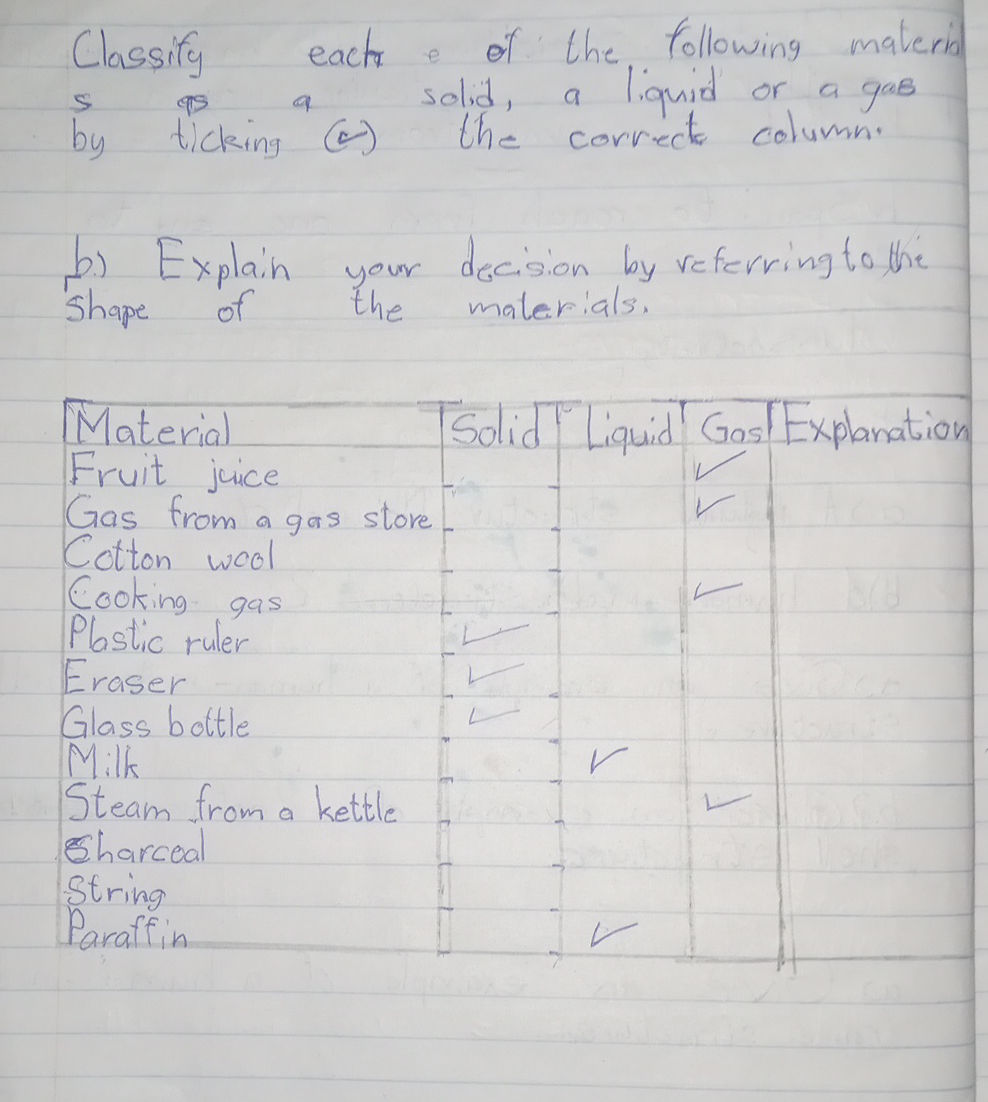 Classify each e of the following materia
s as a solid, a liquid or a gas
by ticking (✓) the correct column.
b.) Explain your decision by referring to the
shape of the materials.
Material Solid Liquid Gas Explanation
Fruit juice ✓
Gas from a gas store ✓
Cotton wool
Cooking gas ✓
Plastic ruler ✓
Eraser ✓
Glass bottle ✓
Milk ✓
Steam from a kettle ✓
Charcoal
String
Paraffin ✓